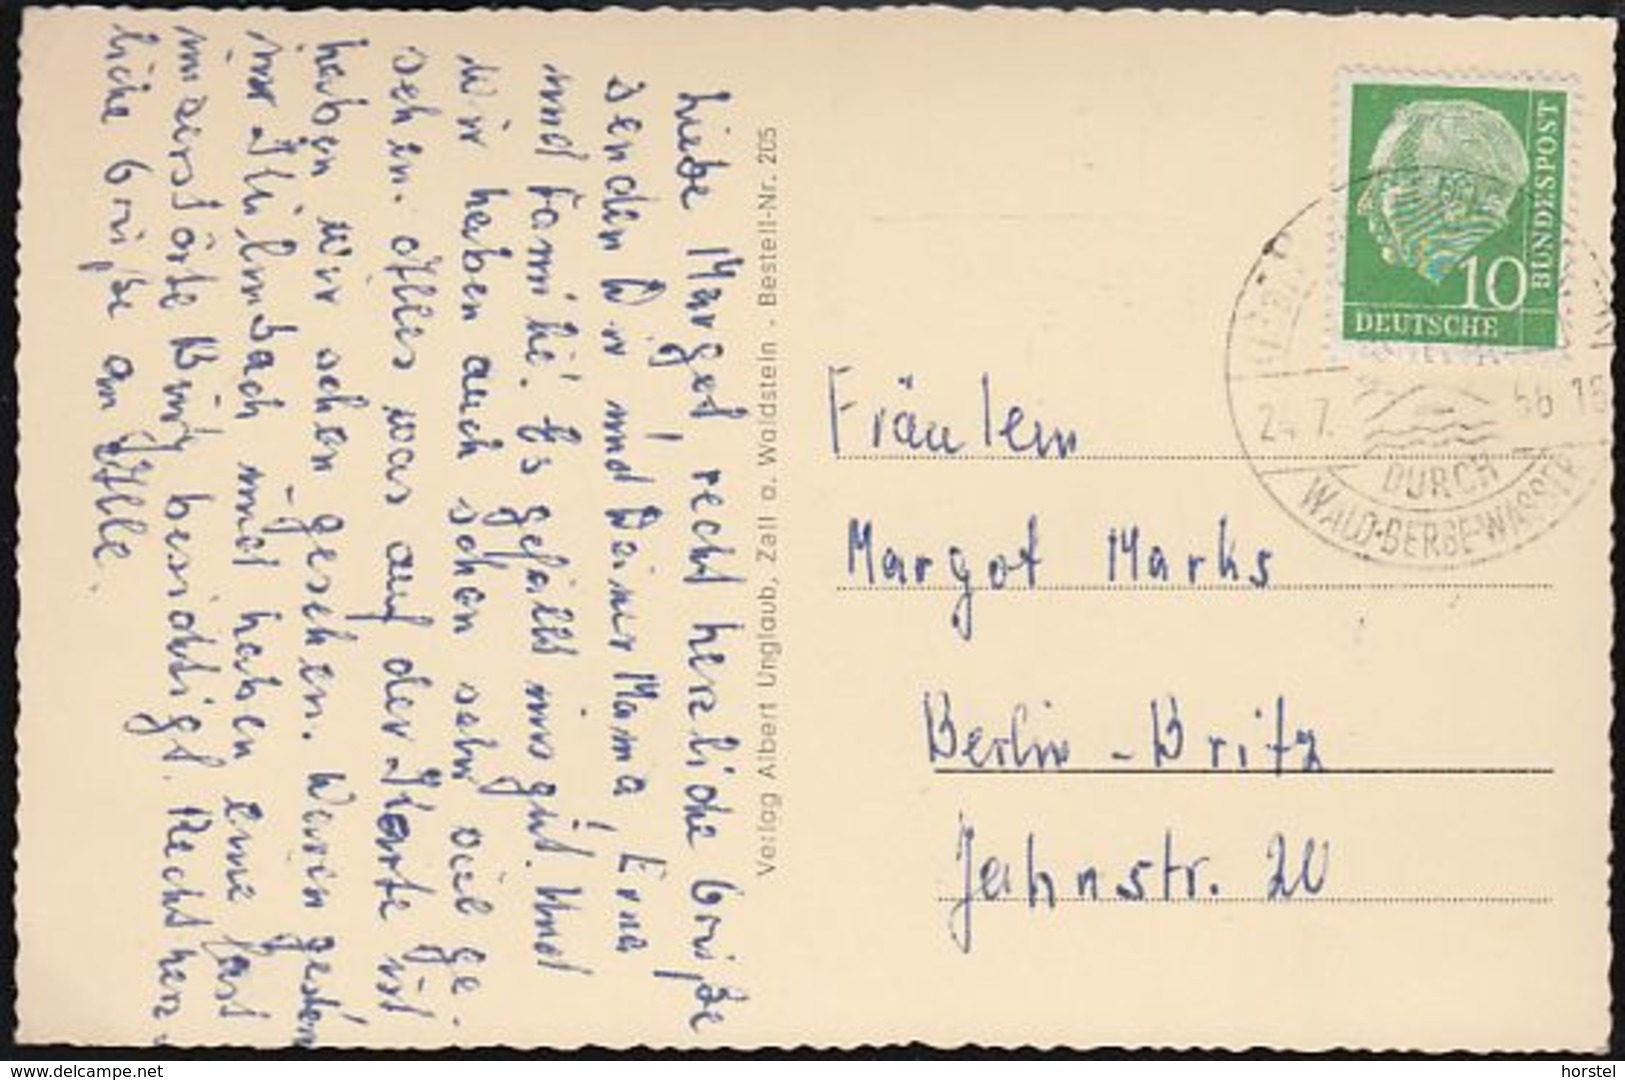 Liebe Margot, recht herzliche Grüße
senden Wir und Deiner Mama, Erna
und Familie. Es gefällt uns gut. Und
Wir haben auch schon sehr viel ge-
sehen. Alles was auf der Karte ist
haben wir schon gesehen. Waren gestern
in und haben eine fast
unzerstörte Burg besichtigt. Recht herz-
liche Grüße an Alle.
Verlag Albert Unglaub, Zell a. Waldstein - Bestell-Nr. 205
10
BUNDESPOST
DEUTSCHE
24.7. 56 16
DURCH
WALD-BERGE-WASSER
Fräulein
Margot Marks
Berlin-Britz
Jahnstr. 20
www.delcampe.net
horstel